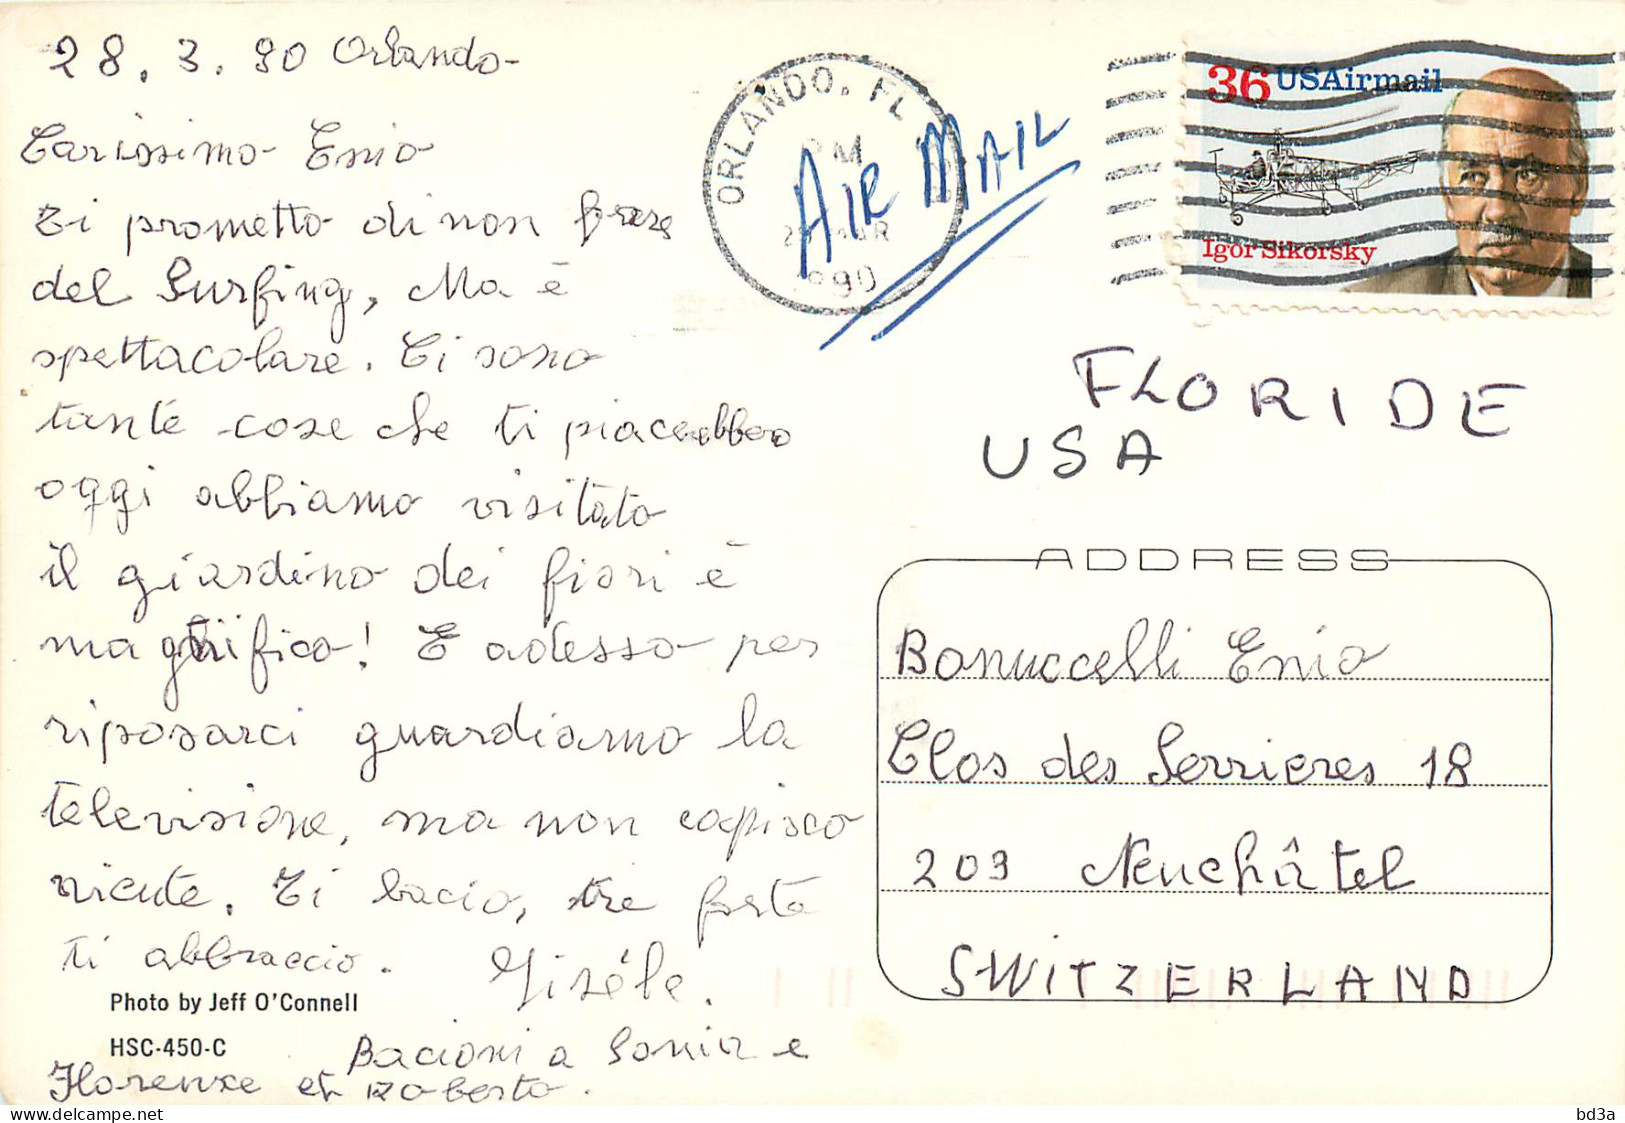 28.3.90 Orlando-
Carissimo Enio
Ti prometto di non farese
del Surfing, Ma è
spettacolare. Ci sono
tante cose che ti piacerebbero
oggi abbiamo visitato
il giardino dei fiori è
magnifico! E adesso per
riposarci guardiamo la
televisione, ma non capisco
niente. Ti bacio, tre forte
ti abbraccio. Gisèle.
Photo by Jeff O'Connell
HSC-450-C
Bacioni a Sonia e
Florence et Roberto.
ORLANDO, FL
PM
MAR
1990
AIR MAIL
36 USAirmail
Igor Sikorsky
FLORIDE
USA
ADDRESS
Bonuccelli Enio
Clos des Serrieres 18
203 Neuchâtel
SWITZERLAND
bd3a